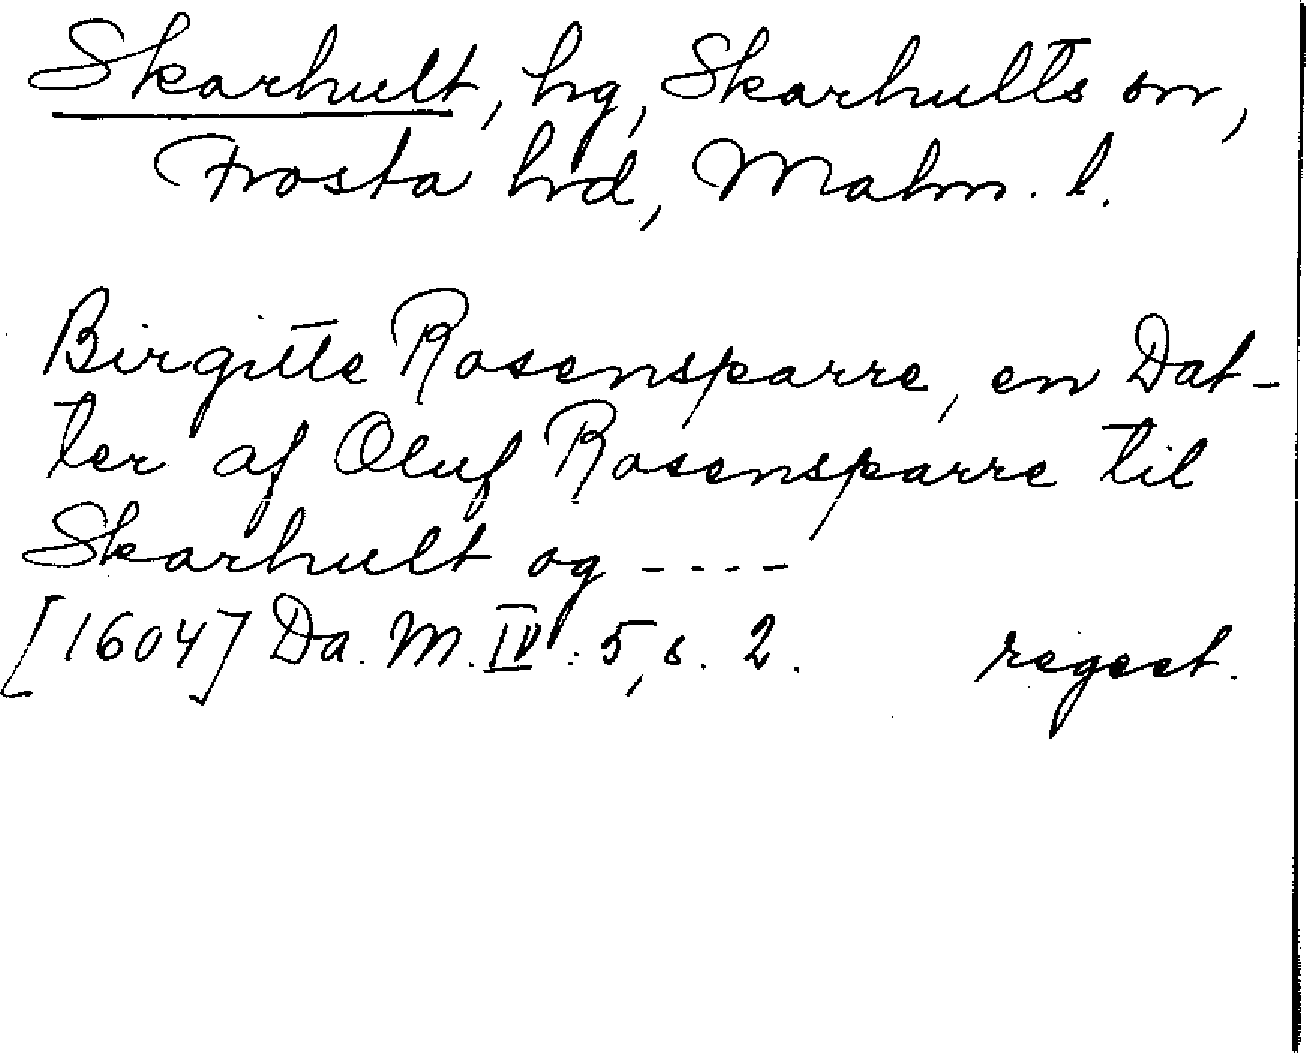 Skarhult, hg, Skarhults sn,
Frosta hd, Malm. l.
Birgitte Rosensparre, en Dat-
ter af Oluf Rosensparre til
Skarhult og ----
[1604] Da. M. IV. 5, s. 2. regest.